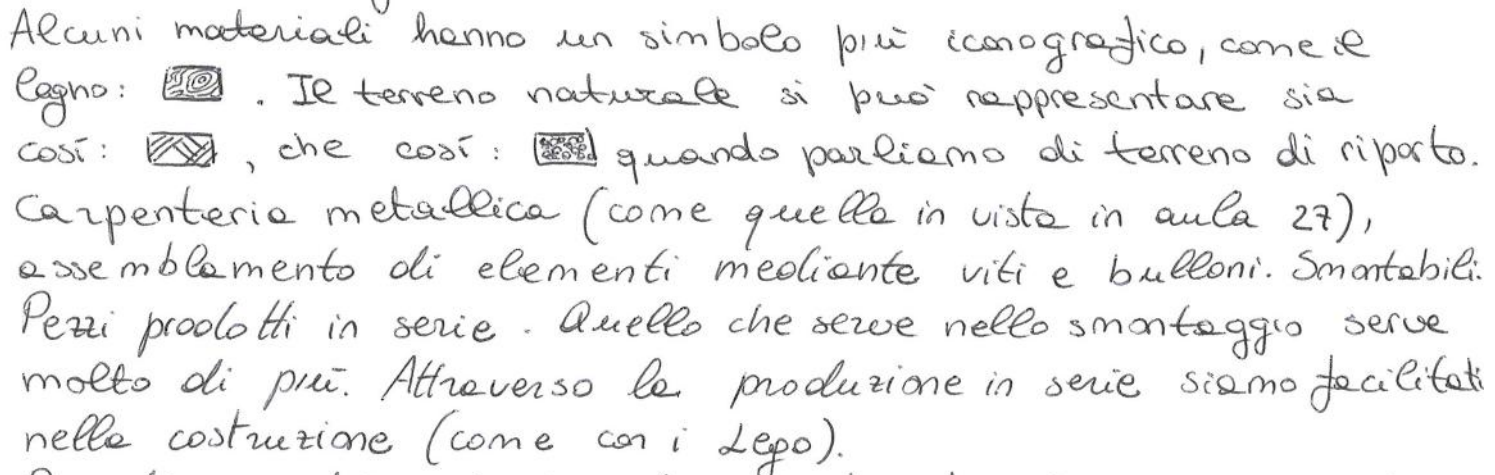 Alcuni materiali hanno un simbolo più iconografico, come il
legno: . Il terreno naturale si può rappresentare sia
così: , che così: quando parliamo di terreno di riporto.
Carpenteria metallica (come quella in vista in aula 27),
assemblamento di elementi mediante viti e bulloni. Smontabili.
Pezzi prodotti in serie. Quello che serve nello smontaggio serve
molto di più. Attraverso la produzione in serie siamo facilitati
nella costruzione (come con i Lego).